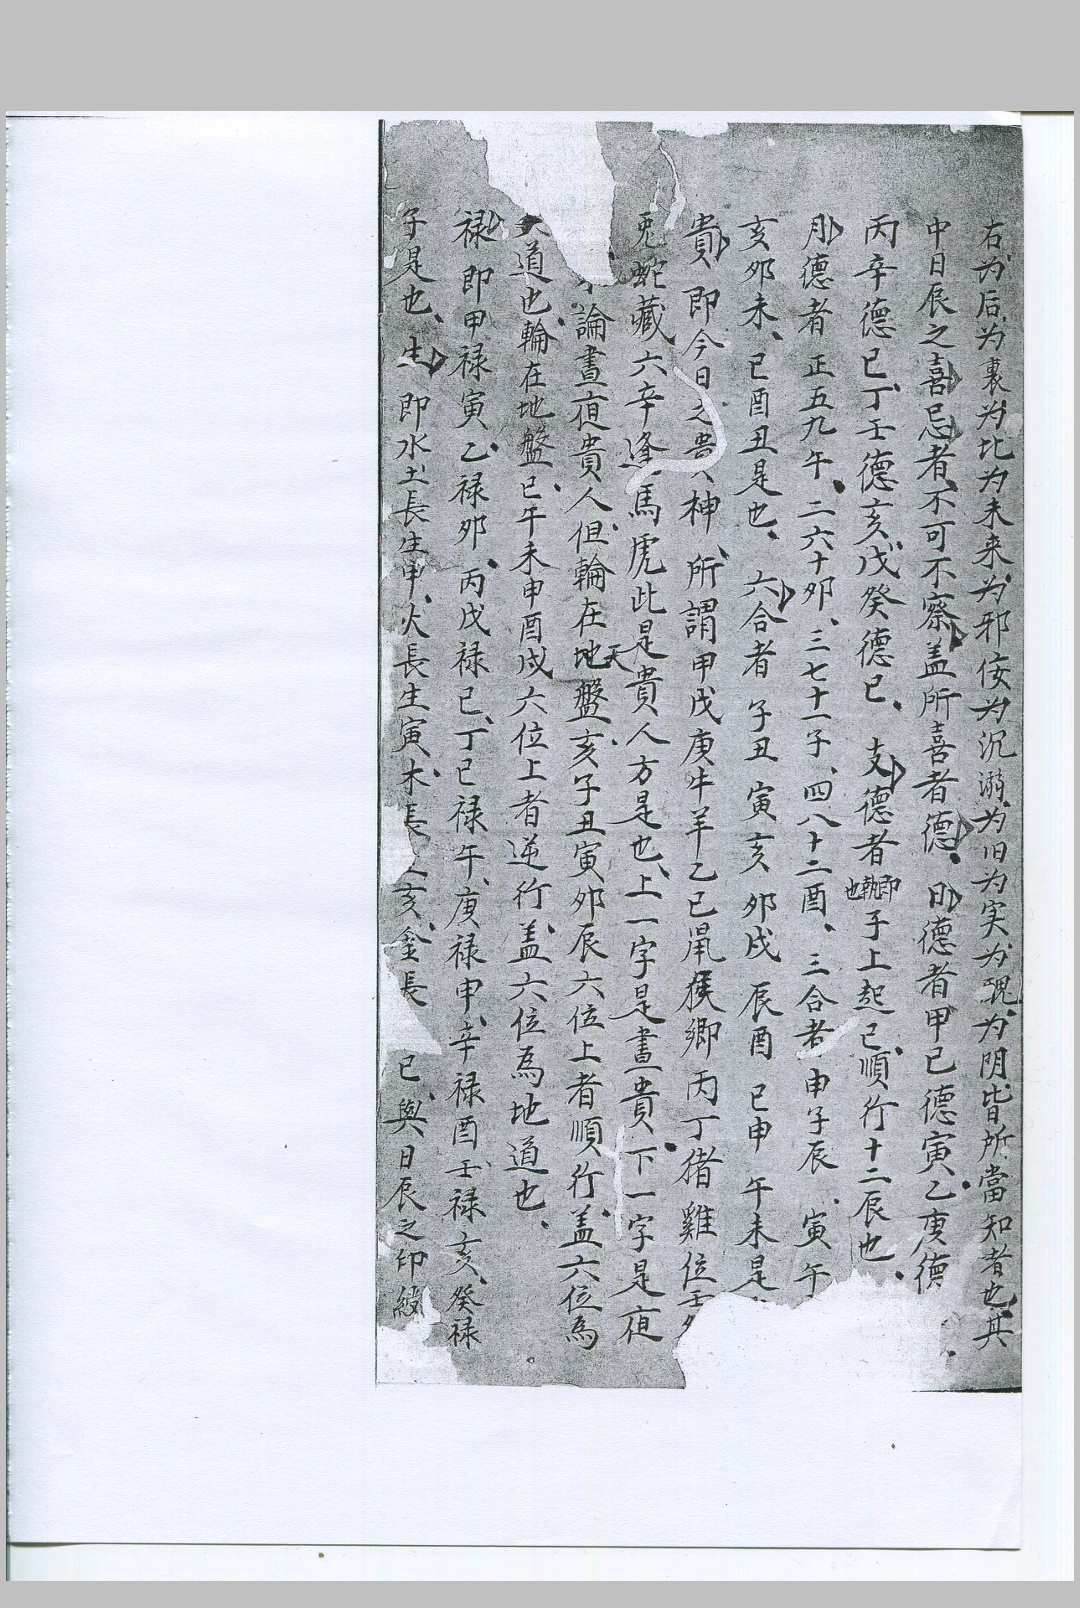 右为后为裏为比为未来为邪佞为沉溺为旧为実为醜为阴皆所當知者也其
中日辰之喜忌者不可不察盖所喜者德日德者甲己德寅乙庚德
丙辛德巳丁壬德亥戊癸德巳支德者即執也子上起巳順行十二辰也
月德者正五九午二六十卯三七十一子四八十二酉三合者申子辰寅午
亥卯未巳酉丑是也六合者子丑寅亥卯戌辰酉巳申午未是
貴即今日之貴神所謂甲戊庚牛羊乙己鼠猴鄉丙丁猪雞位壬
兎蛇藏六辛逢馬虎此是貴人方是也上一字是晝貴下一字是夜
論晝夜貴人但輪在地天盤亥子丑寅卯辰六位上者順行盖六位為
道也輪在地盤巳午未申酉戌六位上者逆行盖六位為地道也
禄即甲禄寅乙禄卯丙戊禄巳丁己禄午庚禄申辛禄酉壬禄亥癸禄
子是也生即水土長生申火長生寅木長亥金長巳與日辰之印綬